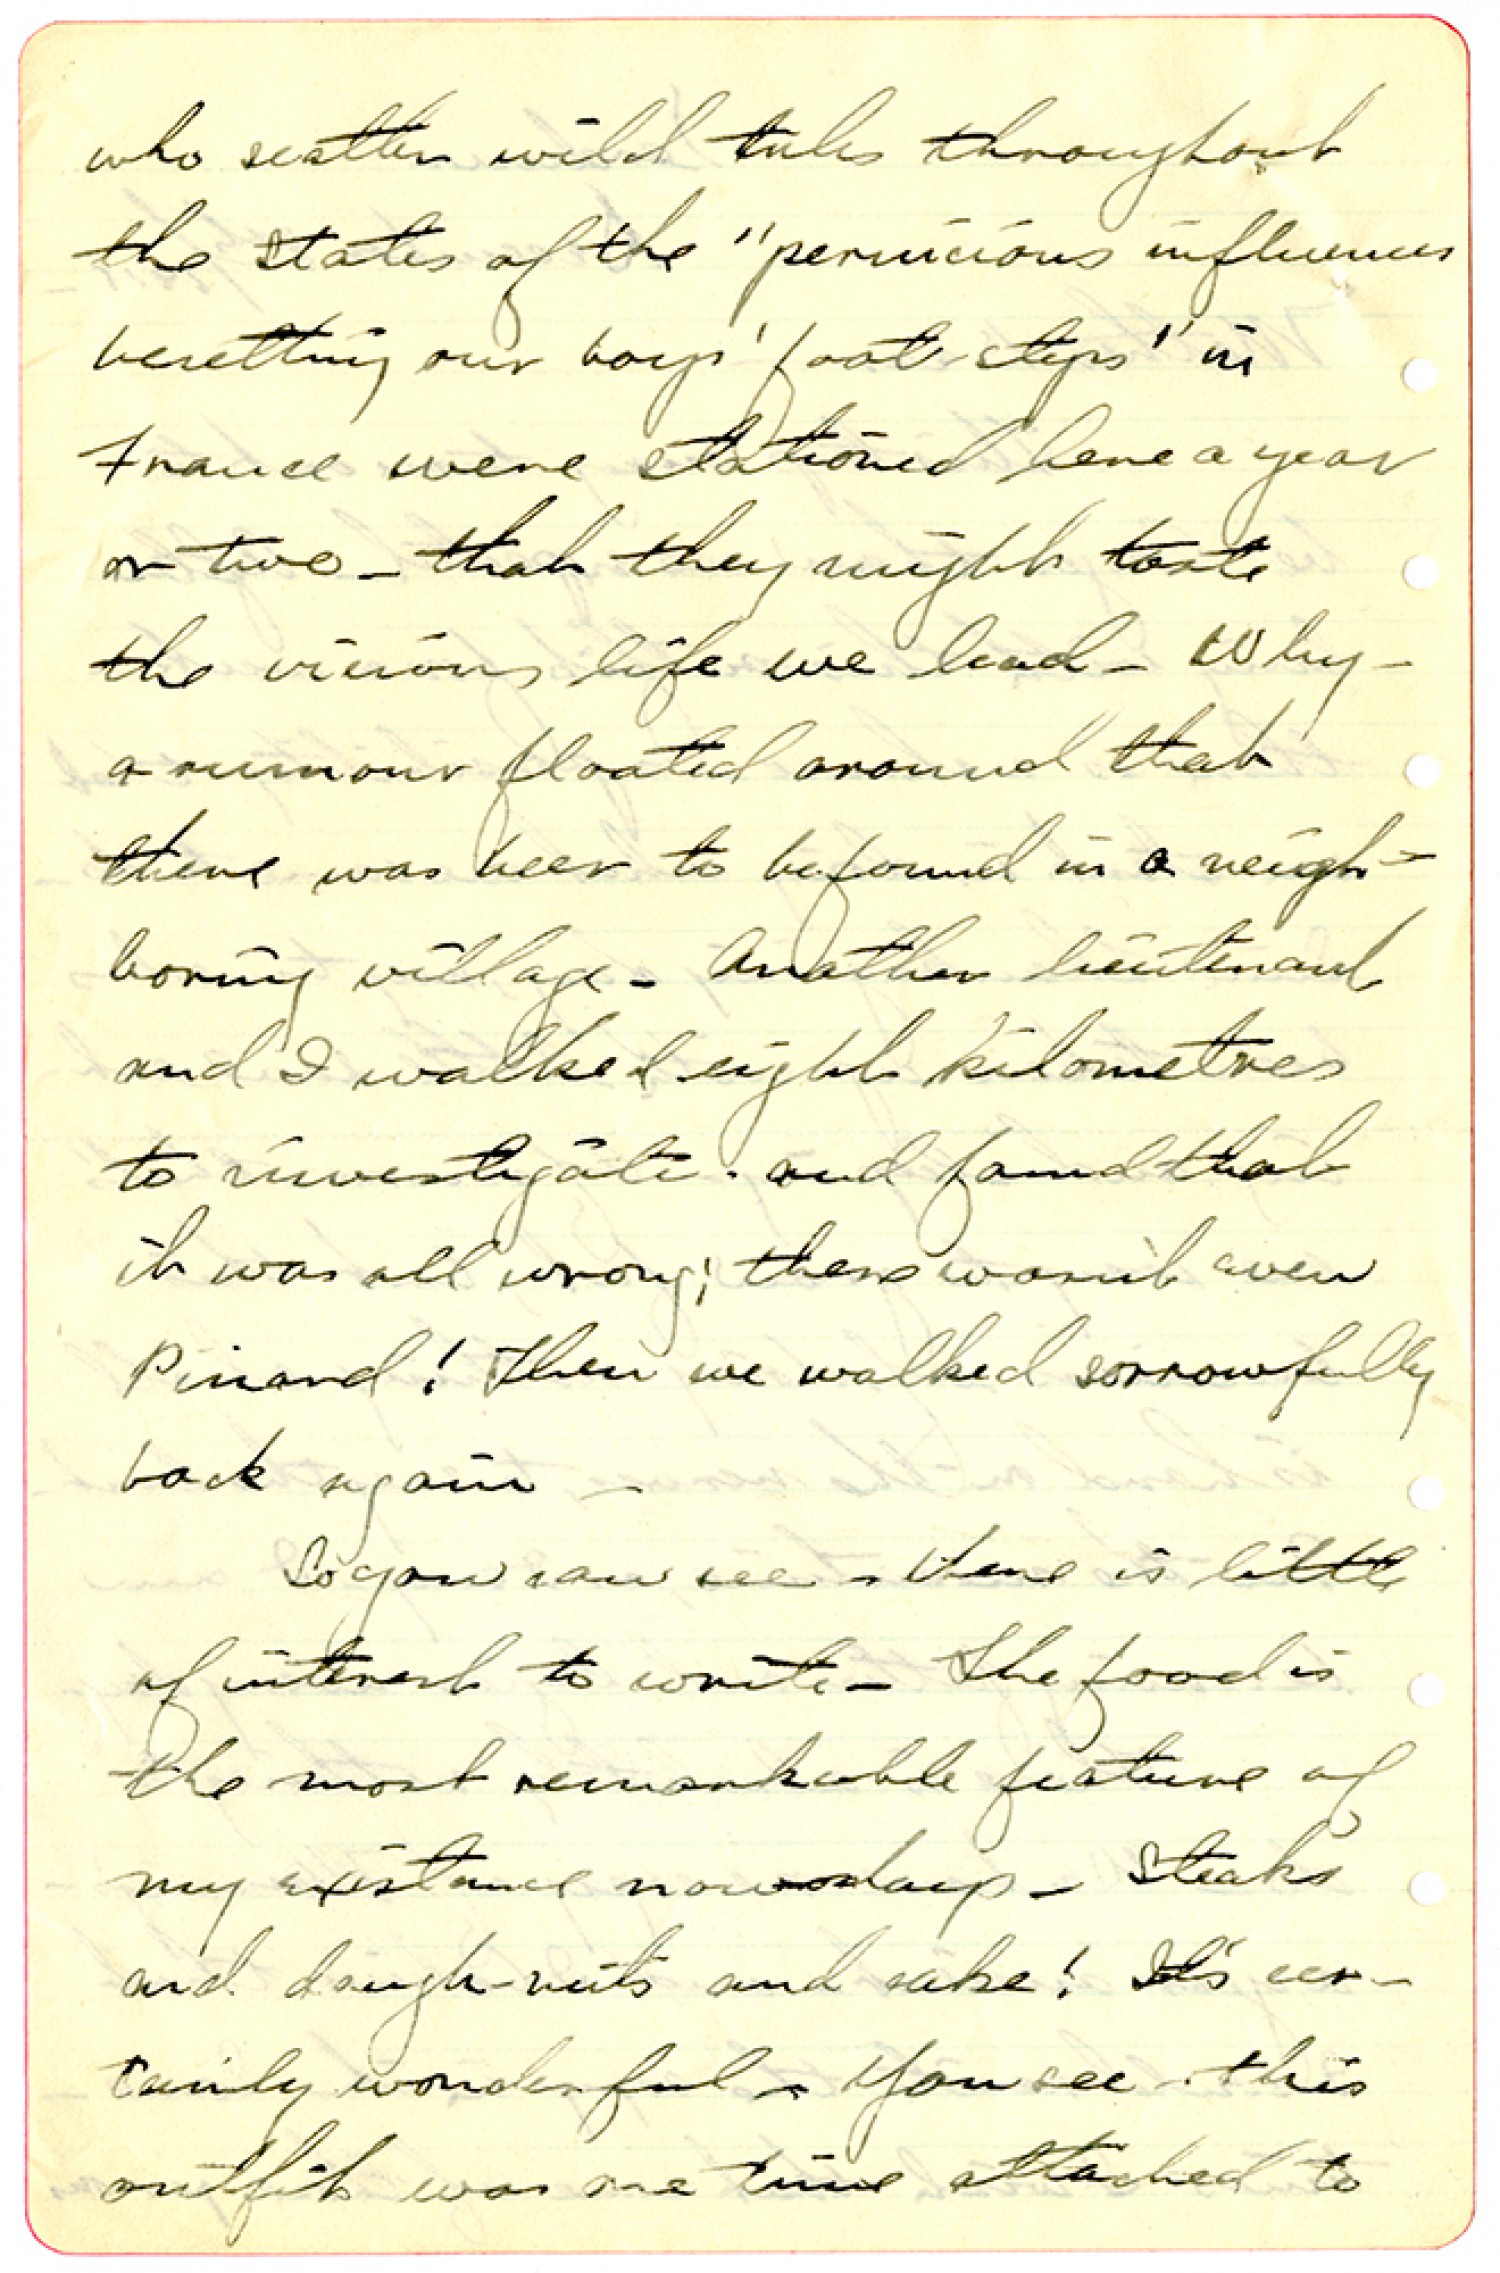 who scatter wild tales throughout
the states of the "pernicious influences
besetting our boys' foot-steps" in
France were stationed here a year
or two - that they might taste
the vicious life we lead - Why -
a rumour floated around that
there was beer to be found in a neigh-
boring village - Another lieutenant
and I walked eight kilometres
to investigate - and found that
it was all wrong; there wasn't even
Pinard! Then we walked sorrowfully
back again -
So you can see - there is little
of interest to write - The food is
the most remarkable feature of
my existance nowadays - Steaks
and dough-nuts and cake! It's cer-
tainly wonderful - You see - this
outfit was one time attached to